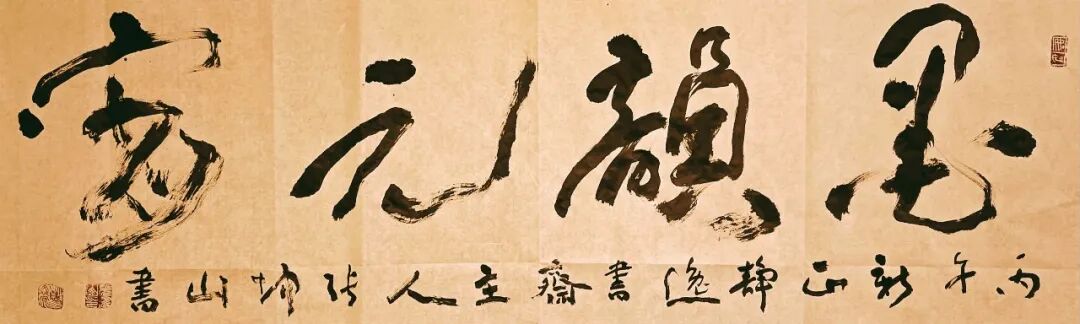 墨韻元宵
丙午新正靜逸書齋主人張坤山書